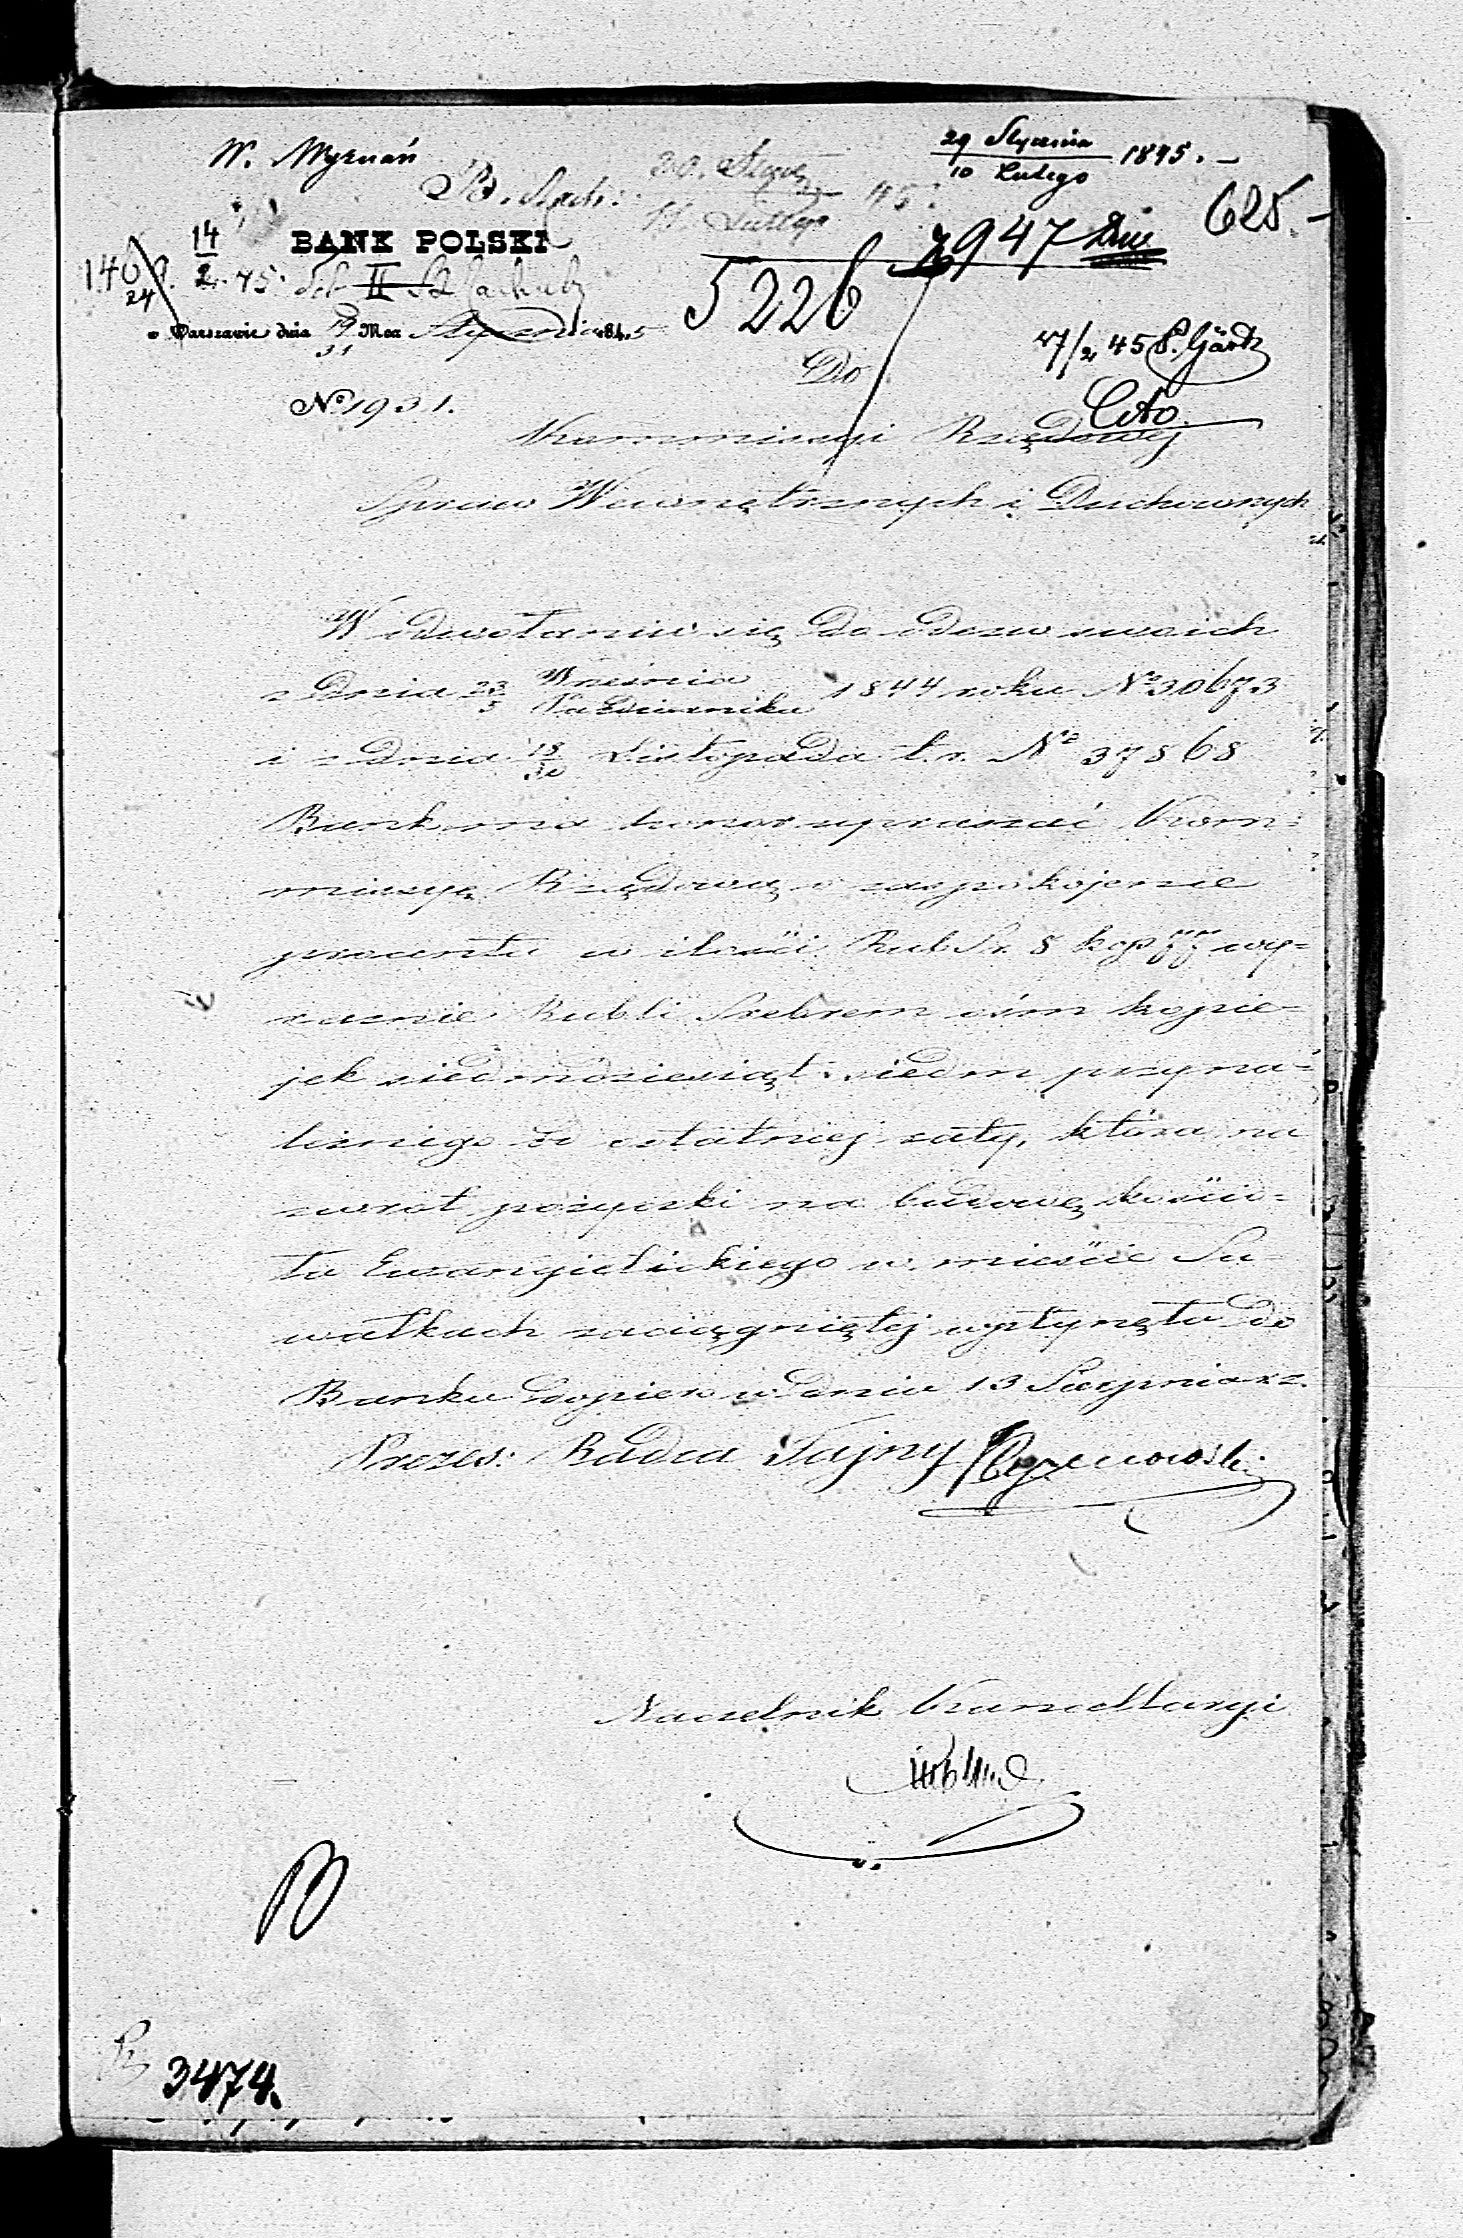 W. Wyznań
29 Stycznia
10 Lutego 1845.
625.
14
2. 45.
BANK POLSKI
II
7947
5226
w Warszawie dnia 19/31 Mca Stycznia 1845
17/2 45
Do
Cito
No 1931.
Kommissyi Rządowej
Spraw Wewnętrznych i Duchownych
W odwołaniu się do odezw swoich
z dnia 23 Września
5 Października 1844 roku No 30673
i z dnia 18/30 Listopada t. r. No 37868
Bank ma honor upraszać Kom=
missyę Rządową o zaspokojenie
procentu w ilości Rub. Sr. 8 kop 77 wy=
raźnie Rubli Srebrem óśm kopie=
jek siedmdziesiąt siedm przyna=
leżnego od ostatniej raty, która na
zwrot pożyczki na budowę kościo=
ła Ewangielickiego w mieście Su=
wałkach zaciągniętej wpłynęła do
Banku dopiero w dniu 13 Sierpnia r. z.
Prezes: Radca Tajny
Naczelnik Kancellaryi
3474.